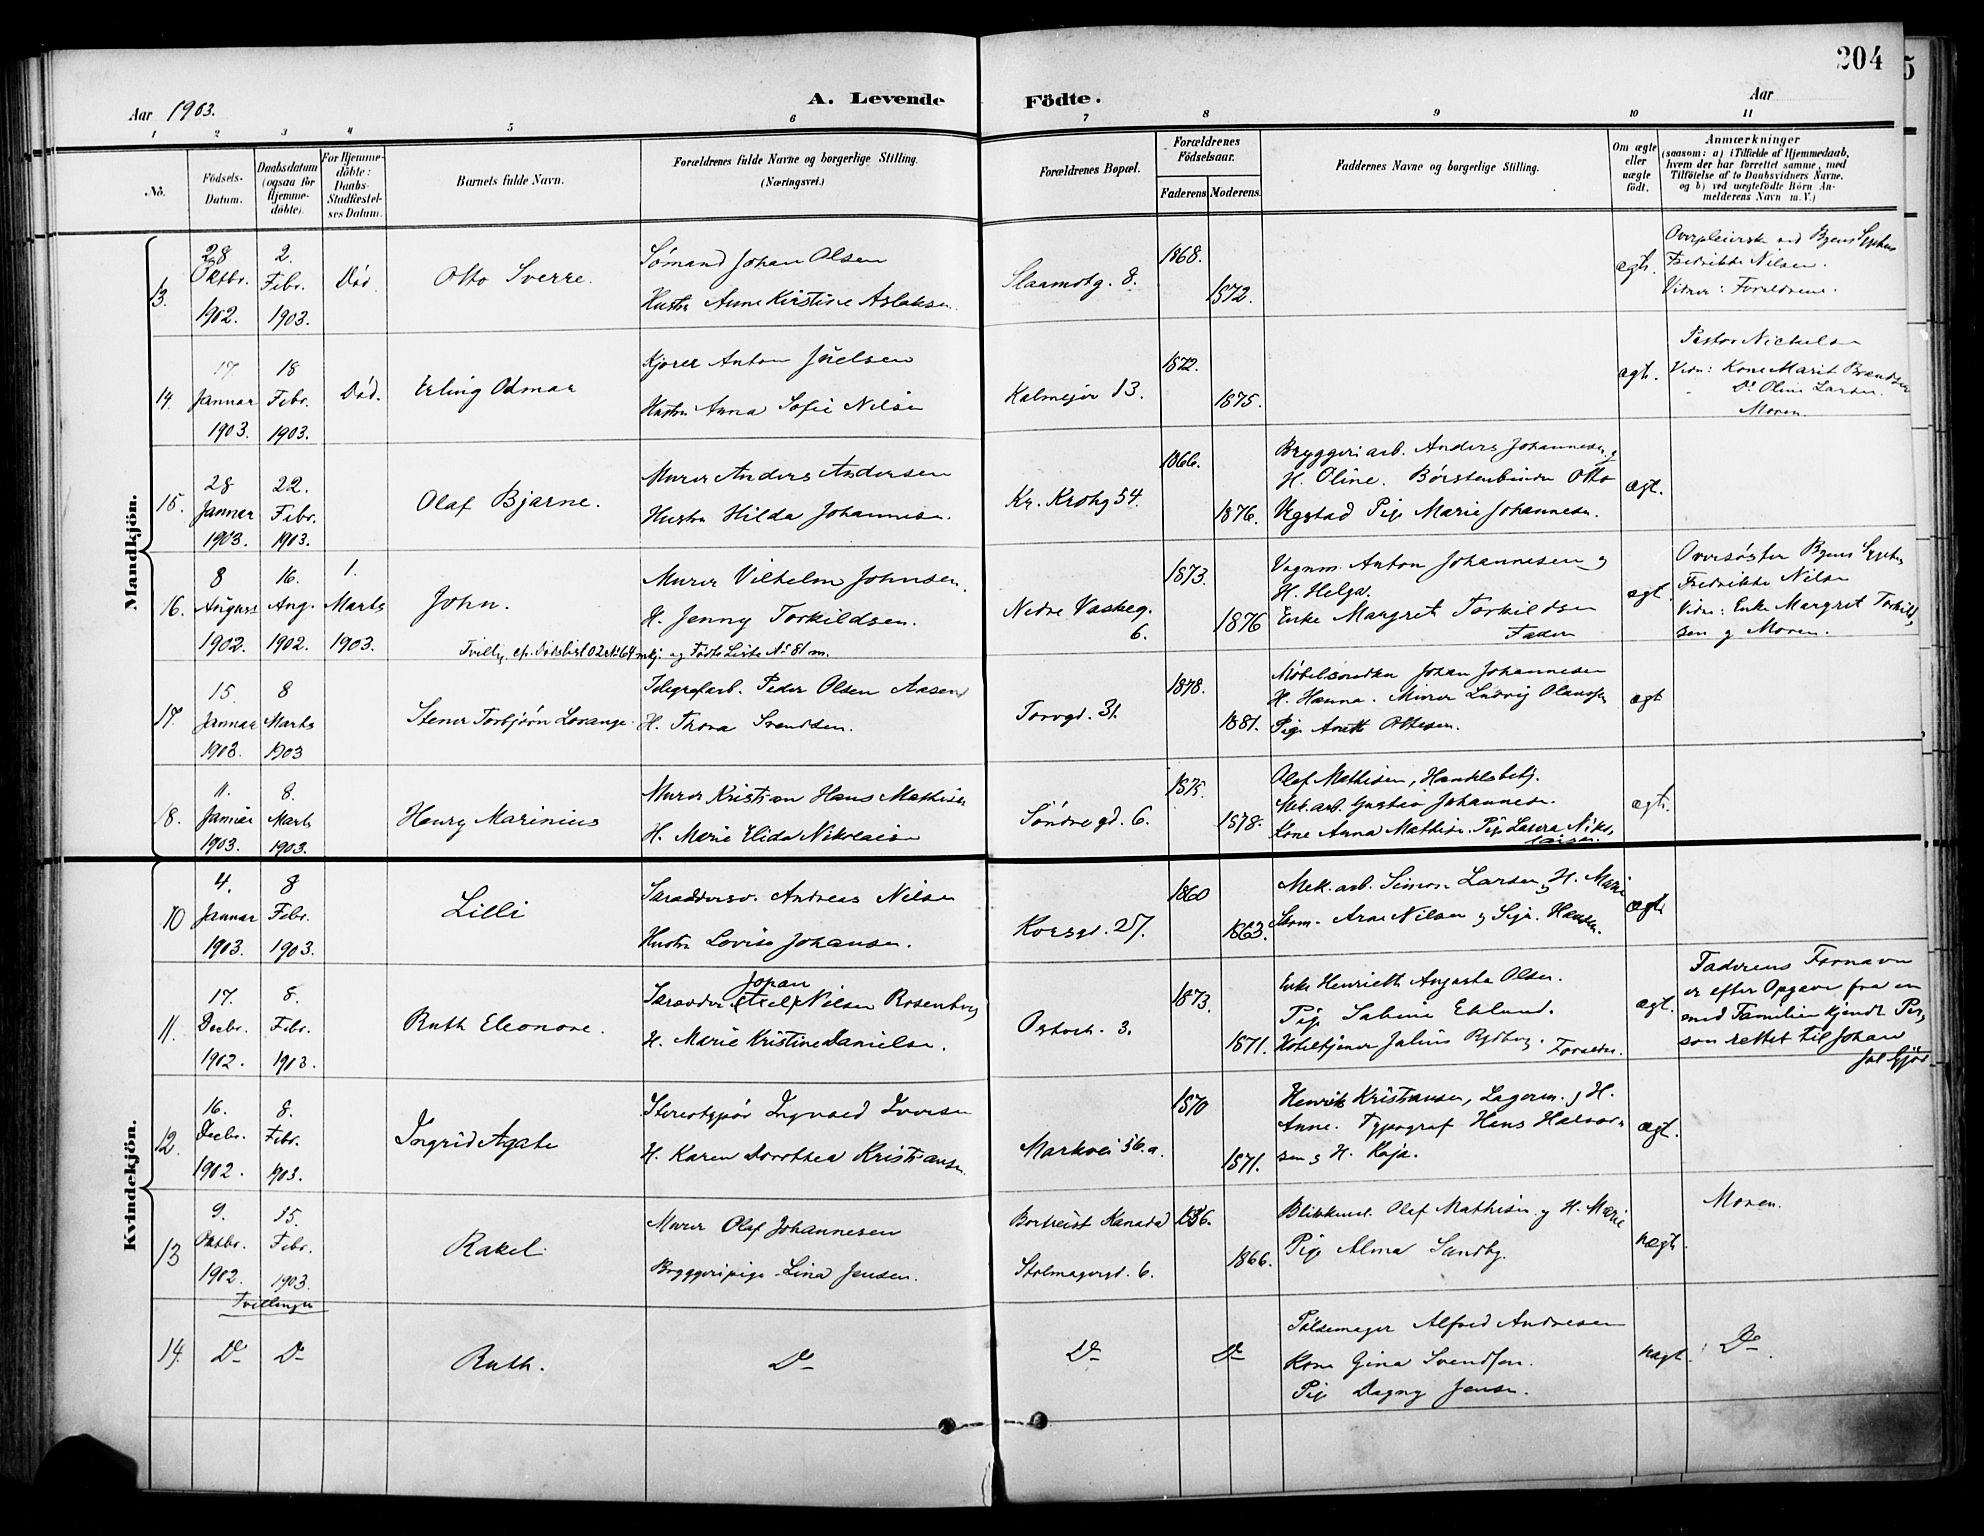 204
Aar 1903.
A. Levende Födte.
Aar
1 2 3 4 5 6 7 8 9 10 11
No.
Födsels-Datum.
Daabsdatum (ogsaa for Hjemmedöbte).
For Hjemmedöbte: Daabs-Stadfæstelses Datum.
Barnets fulde Navn.
Forældrenes fulde Navne og borgerlige Stilling. (Næringsvei.)
Forældrenes Bopæl.
Forældrenes Födselsaar.
Faderens Moderens.
Faddernes Navne og borgerlige Stilling.
Om ægte eller uægte födt.
Anmærkninger
(saasom: a) i Tilfælde af Hjemmedaab, hvem der har forrettet samme, med Tilföielse af to Daabsvidners Navne. og b) ved uægtefödte Börn Anmelderens Navn m. V.)
Mandkjön.
13. 28 Oktbr. 1902. 2. Febr. 1903. Död
Otto Sverre.
Sömand Johan Olsen
Hustru Anne Kirstine Aslaksen
8.
1868. 1872.
ægte.
Fredrikke Nilsen.
Vidner: Forældrene.
14. 17. Januar 1903. 18 Febr. 1903. Död.
Erling Odmar
Kjører Anton Joelsen
Hustru Anna Sofie Nilsen
Kalmejer 13.
1872. 1875.
ægt.
Pastor Nickelsen
Vidn: Kone Marit Brændsen
Do Oline Larsen.
Moren.
15. 28 Januar 1903. 22. Febr. 1903.
Olaf Bjarne.
Murer Anders Andersen
Hustru Hilda Johannesen.
Kr. Krohg 54.
1866. 1876.
Bryggeriarb. Anders Johannesen og
H. Oline. Børstenbinder Otto
Pige Marie Johannesen.
ægt.
16. 8 August 1902. 16. Aug. 1902. 1. Marts 1903.
John.
Murer Vilhelm Johnsen.
H. Jenny Torkildsen.
Tvilling, No 64 mkj. og Födte Liste No 81 m.
Nedre Vaskeg. 6.
1873. 1876
Vognm. Anton Johannesen og
H. Helga.
Enke Margret Torkildsen
Faderen
ægt.
Oversöster Byens Sygehus
Fredrikke Nilsen
Vidner: Enke Margret Torkildsen og Moren.
17. 15. Januar 1903. 8 Marts 1903
Stener Torbjörn Lorange.
Telegrafarb. Peder Olsen Aasend
H. Thora Svendsen.
Torvgd. 31.
1878. 1881.
Møbelsnedker Johan Johannesen
H. Hanna. Murer Ludvig Olaussen
Pige Anette Ottesen.
ægt
18. 11. Januar 1903. 8. Marts 1903.
Henry Marinius
Murer Kristian Hans Mathisen
H. Marie Elida Nikolaisen
Söndregd. 6.
1875. 1878.
Olaf Mathisen, Handelsbetj.
Mek. arb. Gustav Johannesen.
Kone Anna Mathisen. Pige Laura Nikolaisen.
ægte.
Kvindekjön.
10 4. Januar 1903. 8 Febr. 1903.
Lilli
Andreas Nilsen
Hustru Lovise Johansen.
Korsgd. 27.
1860 1863.
Mek. arb. Simon Larsen og H. Marie
Arne Nilsen og Sigr. Hansen.
ægte
11. 17. Decbr. 1902. 8. Febr. 1903.
Ruth Eleonore.
Johan
Nilsen Rosenborg
H. Marie Kristine Danielsen.
3.
1873. 1871.
Enke Henriette Augusta Olsen.
Pige Sabine Eklund.
Hoteltjener Julius Rydberg. Forældre.
ægt.
Faderens Fornavn
er efter Opgave fra en
med Familien kjendt Person rettet til Johan
12. 16. Decbr. 1902. 8. Febr. 1903.
Ingrid Agate
Stereotypör Ingvald Iversen
H. Karen Dorothea Kristiansen.
Markvei 56.a.
1870 1871.
Henrik Kristiansen, Lagerm. og H.
Anne. Typograf Hans Halvorsen og H. Kaja.
ægt.
13 9. Oktbr. 1902. 15. Febr. 1903.
Rakel
Murer Olaf Johannesen
Bryggeripige Lina Jensen.
Bortreist Kanada
Stolmagergd. 6.
1866.
Blikkensl. Olaf Mathisen og H. Marie
Pige Alma Sundby.
uægte.
Moren.
Tvillinger
14. Do Do
Ruth.
Do
Do
Do
Pölsemager Alfred Andresen
Kone Gina Svendsen.
Pige Dagny Jensen.
uægt.
Do